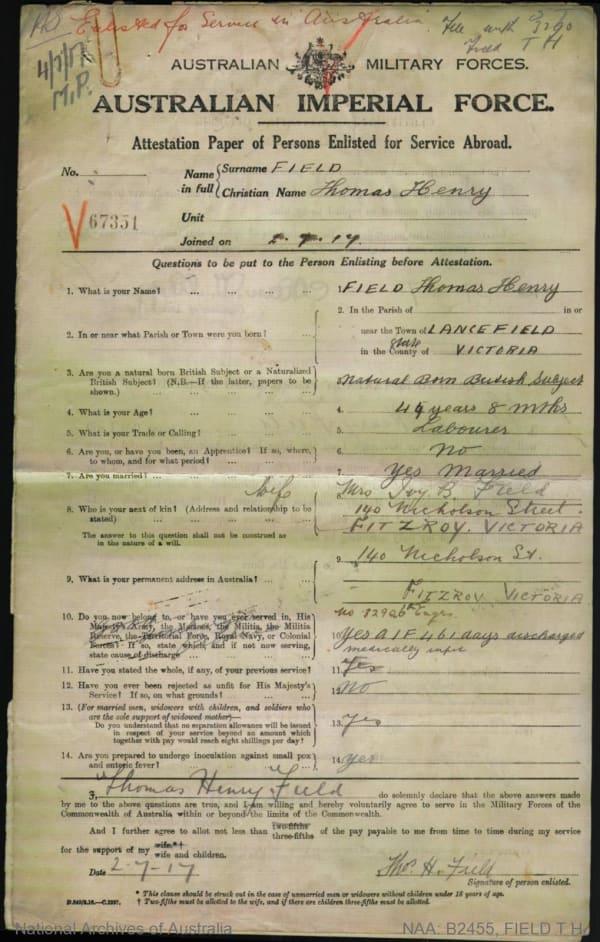 Enlisted for Service in Australia
File with 3290
Field T H
4/7/17
M.P.
AUSTRALIAN MILITARY FORCES.
AUSTRALIAN IMPERIAL FORCE.
Attestation Paper of Persons Enlisted for Service Abroad.
No. Name in full Surname FIELD
Christian Name Thomas Henry
V 67351
Unit
Joined on 2.7.17.
Questions to be put to the Person Enlisting before Attestation.
1. What is your Name? ... ... ... ... 1. FIELD Thomas Henry
2. In or near what Parish or Town were you born? ... 2. In the Parish of in or
near the Town of LANCEFIELD
in the County of State VICTORIA
3. Are you a natural born British Subject or a Naturalized
British Subject? (N.B.—If the latter, papers to be
shown.) ... ... ... 3. Natural Born British Subject
4. What is your Age? ... ... ... 4. years 8 mths
5. What is your Trade or Calling? ... ... 5. Labourer
6. Are you, or have you been, an Apprentice? If so, where,
to whom, and for what period? ... ... 6. No
7. Are you married? ... ... ... 7. Yes Married
wife
8. Who is your next of kin? (Address and relationship to be
stated) ... ... 8. Mrs Ivy B. Field
Nicholson Street
FITZROY. VICTORIA
The answer to this question shall not be construed as
in the nature of a will.
9. What is your permanent address in Australia? ... 9. 140 Nicholson St.
FITZROY VICTORIA
10. Do you now belong to, or have you ever served in, His
Majesty's Army, the Marines, the Militia, the Militia
Reserve, the Territorial Force, Royal Navy, or Colonial
Forces? If so, state which, and if not now serving,
state cause of discharge
10. Yes A I F 461 days discharged
medically unfit
11. Have you stated the whole, if any, of your previous service? 11. Yes
12. Have you ever been rejected as unfit for His Majesty's
Service? If so, on what grounds? 12. No
13. (For married men, widowers with children, and soldiers who
are the sole support of widowed mother)—
Do you understand that no separation allowance will be issued
in respect of your service beyond an amount which
together with pay would reach eight shillings per day? 13. Yes
14. Are you prepared to undergo inoculation against small pox
and enteric fever? 14. Yes
I, Thomas Henry Field do solemnly declare that the above answers made
by me to the above questions are true, and I am willing and hereby voluntarily agree to serve in the Military Forces of the
Commonwealth of Australia within or beyond the limits of the Commonwealth.
And I further agree to allot not less than two-fifths three-fifths of the pay payable to me from time to time during my service
for the support of my wife.*† wife and children.
Date 2-7-17 Thos H. Field
Signature of person enlisted.
* This clause should be struck out in the case of unmarried men or widowers without children under 18 years of age.
† Two-fifths must be allotted to the wife, and if there are children three-fifths must be allotted.
National Archives of Australia
NAA: B2455, FIELD T H